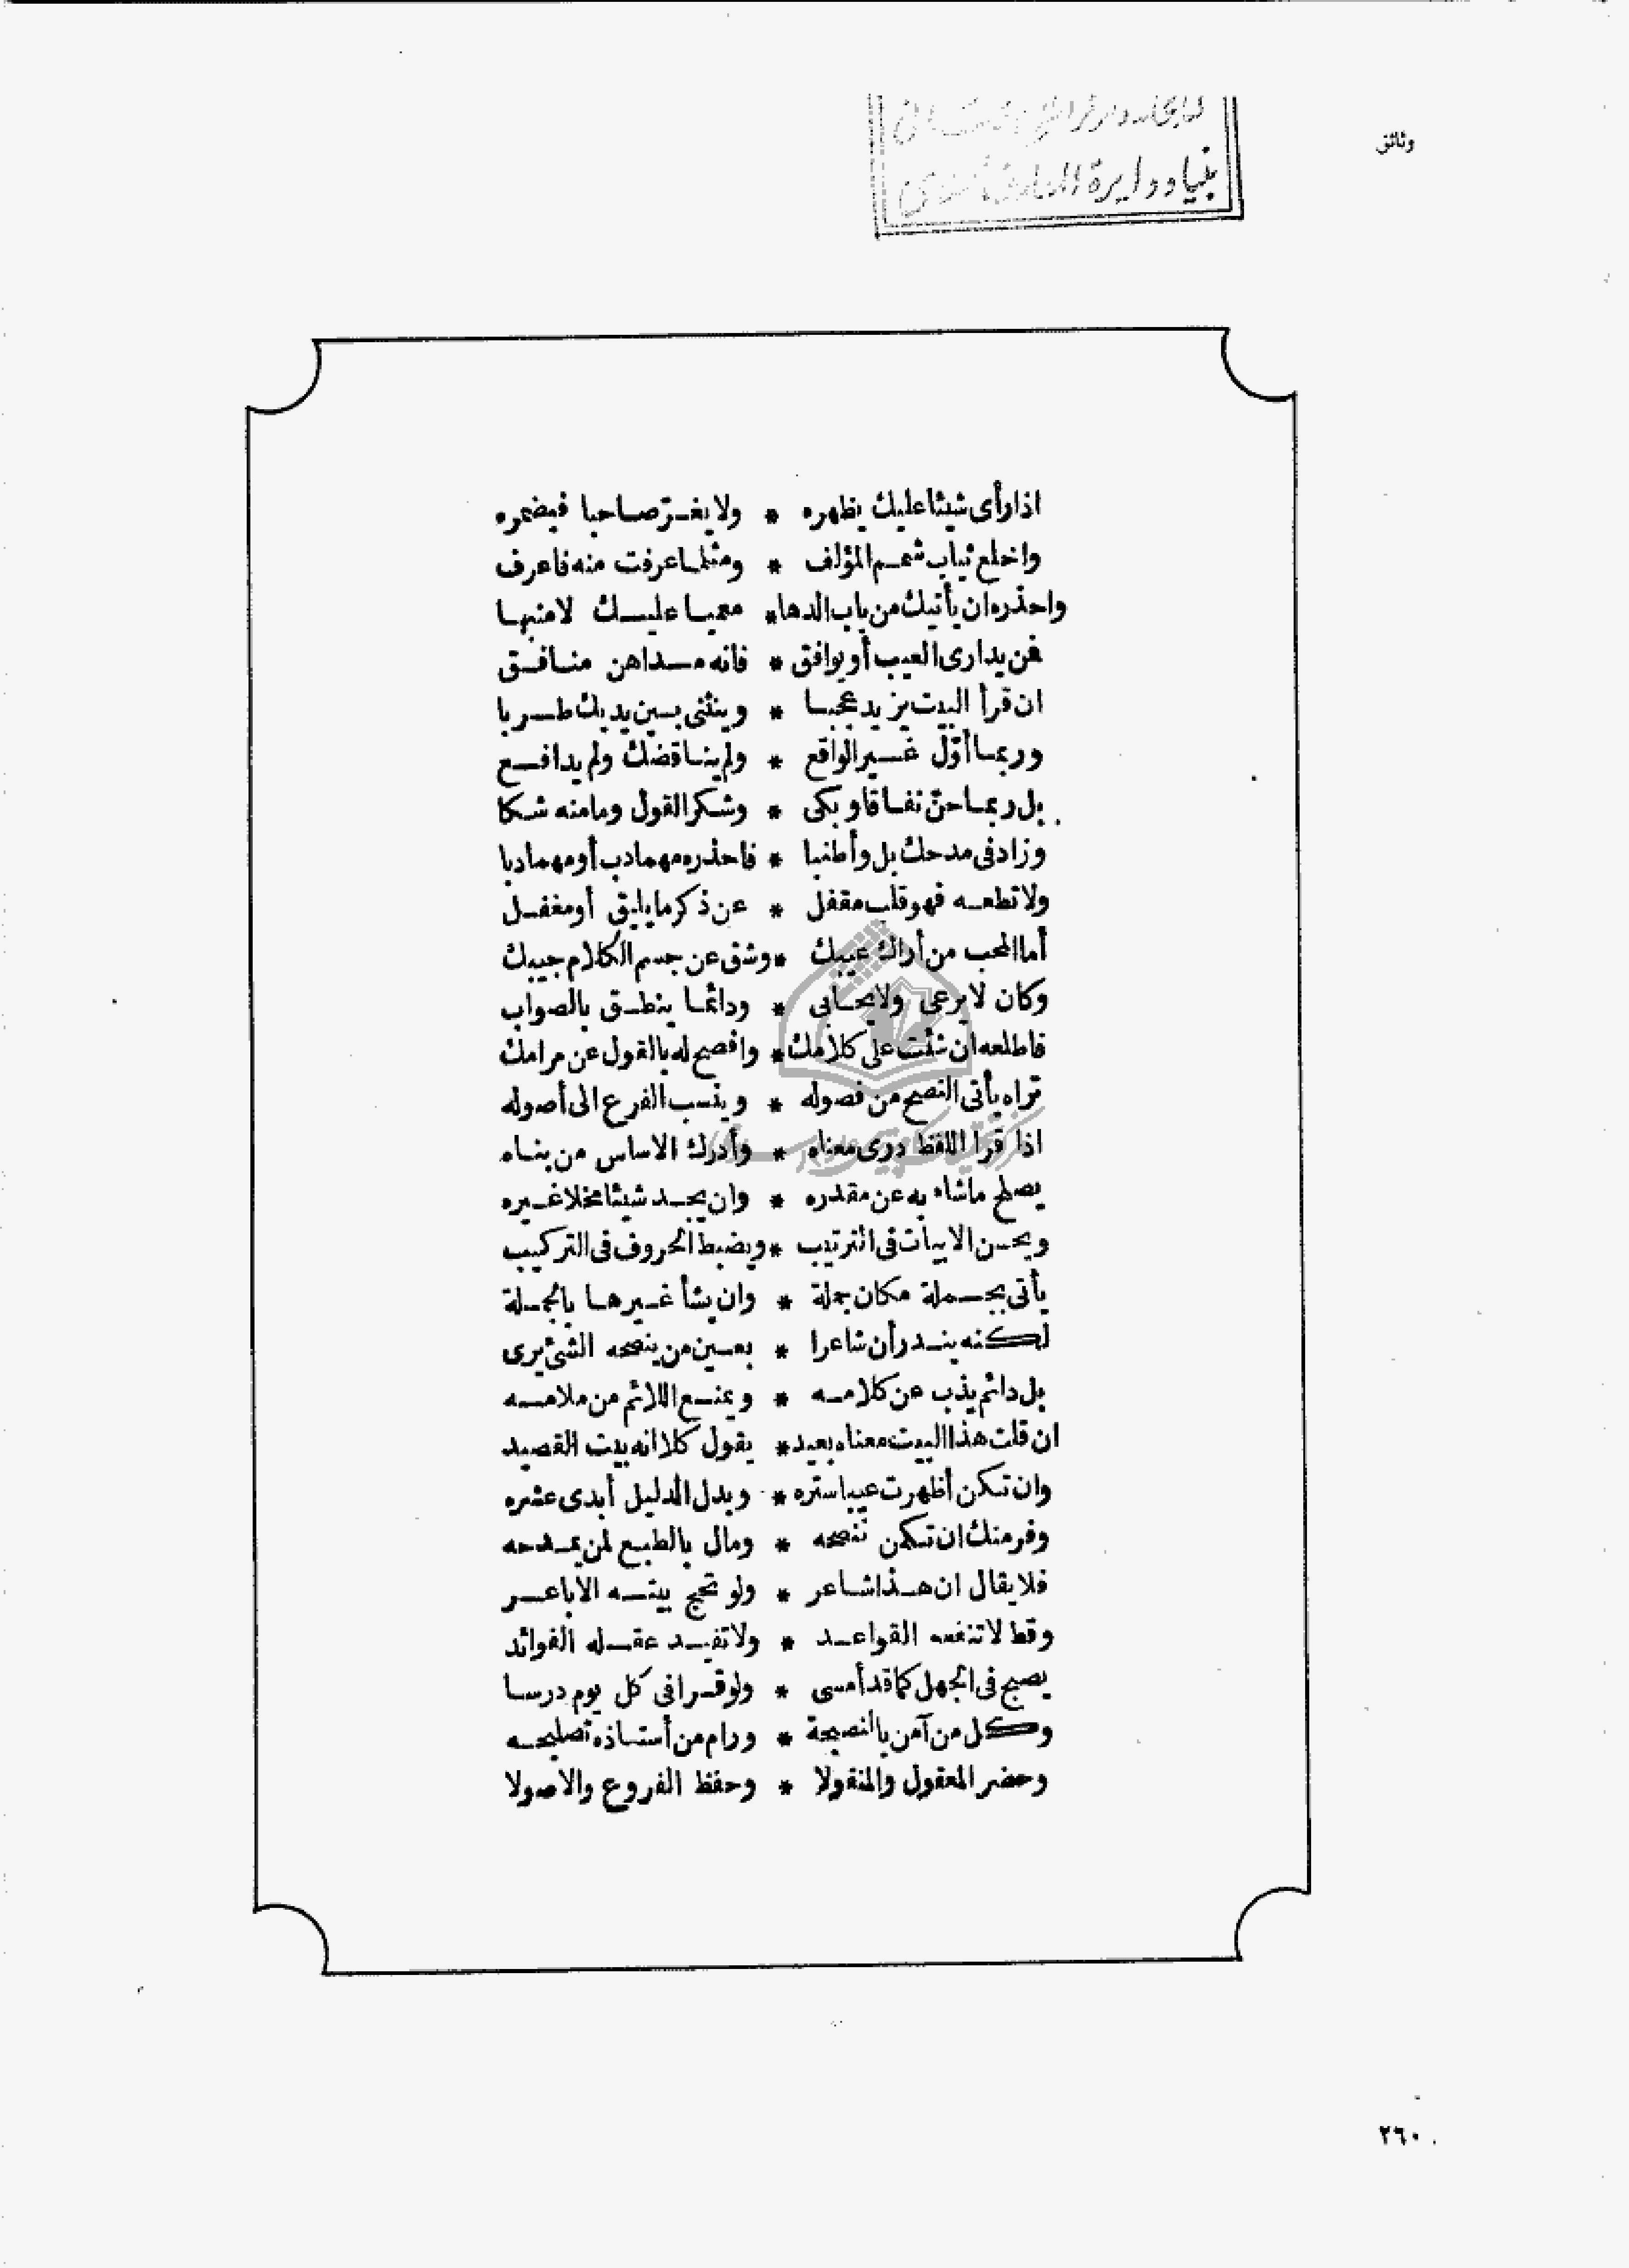 وثائق
بنياد دايرة المعارف
اذا رأى شيئا عليك يظهره * ولا يغــرّ صاحبا فيضمره
واخلع ثياب شمــم المؤلف * ومثلما عرفت منه فاعرف
واحذره ان يأتيك من باب الدها * معميا عليــك لا منبها
فمن يدارى العيب أو يوافق * فانه مــداهن منــافــق
ان قرأ البيت يزيد عجبا * وينثنى بــين يديك طــربا
وربمــا أوّل غــير الواقع * ولم يناقضك ولم يدافــع
بل ربمــا حنّ نفــاقا وبكى * وشكر القول وما منه شكا
وزاد فى مدحك بل وأطنبا * فاحذره مهما دب أو مهما دبا
ولا تطعــه فهو قلب مقفل * عن ذكر ما يليق أو مغفــل
أما المحب من أراك عيبك * وشق عن جسم الكلام جيبك
وكان لا يرعى ولا يحــابى * ودائمــا ينطــق بالصواب
فاطلعه ان شئت على كلامك * وافصح له بالقول عن مرامك
تراه يأتى النصح من فصوله * وينسب الفرع الى أصوله
اذا قرا اللفظ درى معناه * وأدرك الاساس من بنــاه
يصلح ما شاء به عن مقدره * وان يجــد شيئا مخلا غــيره
ويحــسن الابيات فى الترتيب * ويضبط الحروف فى التركيب
يأتى بجــملة مكان جملة * وان يشأ غــيرهــا بالجمــلة
لكنه ينــدر أن شاعرا * بعــين من ينصحه الشئ يرى
بل دائم يذب عن كلامــه * ويمنــع اللائم من ملامــه
ان قلت هذا البيت معناه بعيد * يقول كلا انه بيت القصيد
وان تكن أظهرت عيبا ستره * وبدل الدليل أبدى عشره
وفر منك ان تكن تنصحه * ومال بالطبــع لمن يمــدحه
فلا يقال ان هــذا شــاعر * ولو تحج بيتــه الاباعــر
وقط لا تنفعه القواعــد * ولا تفيــد عقــله الفوائد
يصبح فى الجهل كما قد أمسى * ولو قــرا فى كل يوم درسا
وكل من آمن بالنصيحة * ورام من أستــاذه تصليحــه
وحضر المعقول والمنقولا * وحفظ الفروع والاصولا
٢٦٠